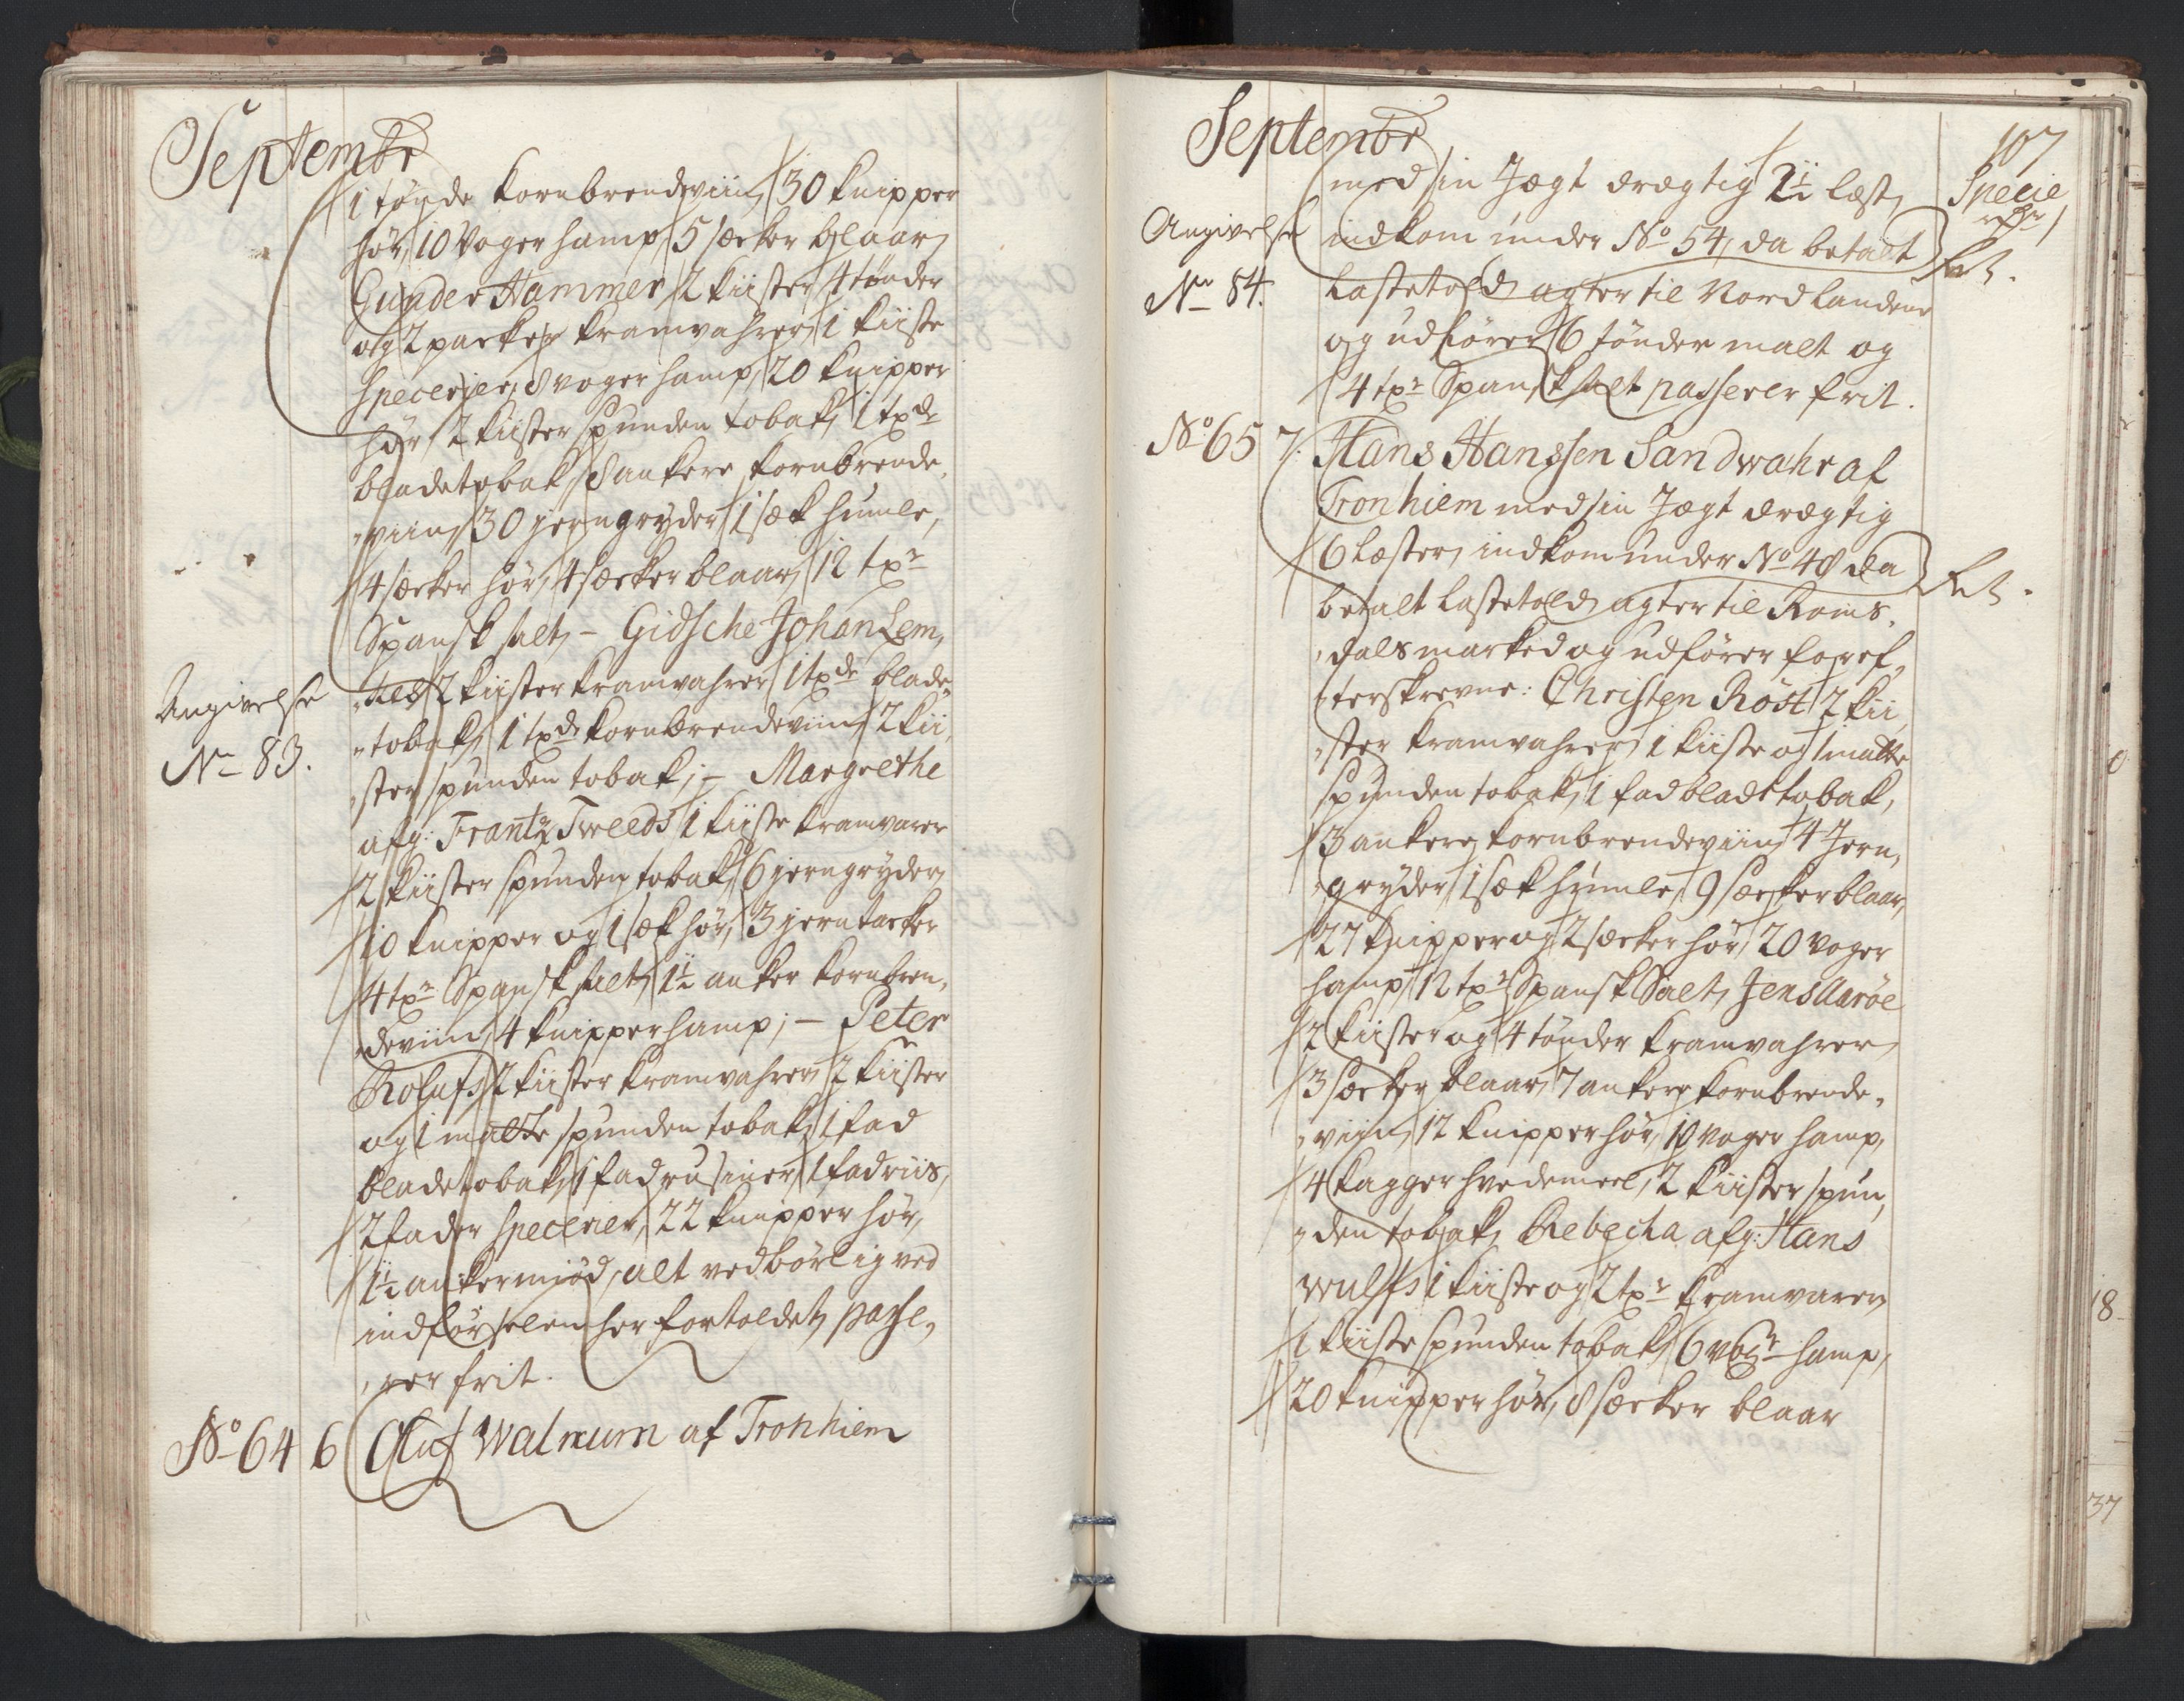 Septembr
1 tønde kornbrendeviin, 30 knipper
hør, 10 Voger hamp, 5 sæcker blaar,
Gunder Hammer 2 kiister 4 tønder
og 2 packer kramvahrer, 1 kiiste
specerier, 8 voger hamp, 20 knipper
hør, 2 kiister spunden tobak, 1 txde
bladetobak, 8 ankere kornbrende,
„viin, 30 jerngryder, 1 sæk humle,
4 sæcker hør, 4 sæcker blaar, 12 txr
Spansk salt, - Gidsche Johan Lem,
2 kiister kramvahrer, 1 txde blade„
Angivelse
„tobak, 1 txde kornbrendeviin, 2 kii„
No 83.
„ster spunden tobak; - Margrethe
afg: Frantz Tweeds 1 kiiste kramvarer
2 kiister spunden tobak, 6 jerngryder,
10 knipper og 1 sæk hør, 3 jerntacker
4 txr Spansk salt, 1½ anker kornbren„
„deviin, 4 knipper hamp; - Peter
Rolufs 2 kiister kramvahrer, 2 kiister
og 1 matte spunden tobak, 1 fad
bladetobak, 1 fad rusiner, 1 fad riis,
2 fader specerier, 22 knipper hør,
1½ anker miød, alt vedbørlig ved
indførselen her fortoldet, passe„
„rer frit.
No 64 6 Oluf Walnum af Tronhiem
Septembr
107
med sin Jægt drægtig 2½ læst,
Specie
rdr
Angivelse
indkom under No 54, da betalt
No 84.
Lastetold, agter til Nordlandene
og udfører 6 tønder malt og
4 txr Spansk salt passerer frit.
No 65 7. Hans Hanssen Sandwahr af
Tronhiem med sin Jægt drægtig
6 Læster, indkom under No 48 da
betalt Lastetold, agter til Roms„
„dals marked og udfører foref„
„terskrevne: Christen Röst 2 kii„
„ster kramvahrer, 1 kiiste og 1 matte
spunden tobak, 1 fad bladetobak,
3 ankere kornbrendeviin, 4 Jern„
„gryder, 1 sæk humle, 9 sæcker blaar,
27 knipper og 2 sæcker hør, 20 voger
hamp, 12 txr Spansk Salt, Jens Aarøe
2 kiister og 4 tønder kramvahrer,
3 sæcker blaar, 7 ankere kornbrende„
„viin, 12 knipper hør, 10 voger hamp,
4 kagger hvedemeel, 2 kiister spun„
„den tobak, Rebecha afg: Hans
Wulfs 1 kiiste og 2 txr kramvarer,
1 kiiste spunden tobak, 6 voger hamp,
20 knipper hør, 8 sæcker blaar